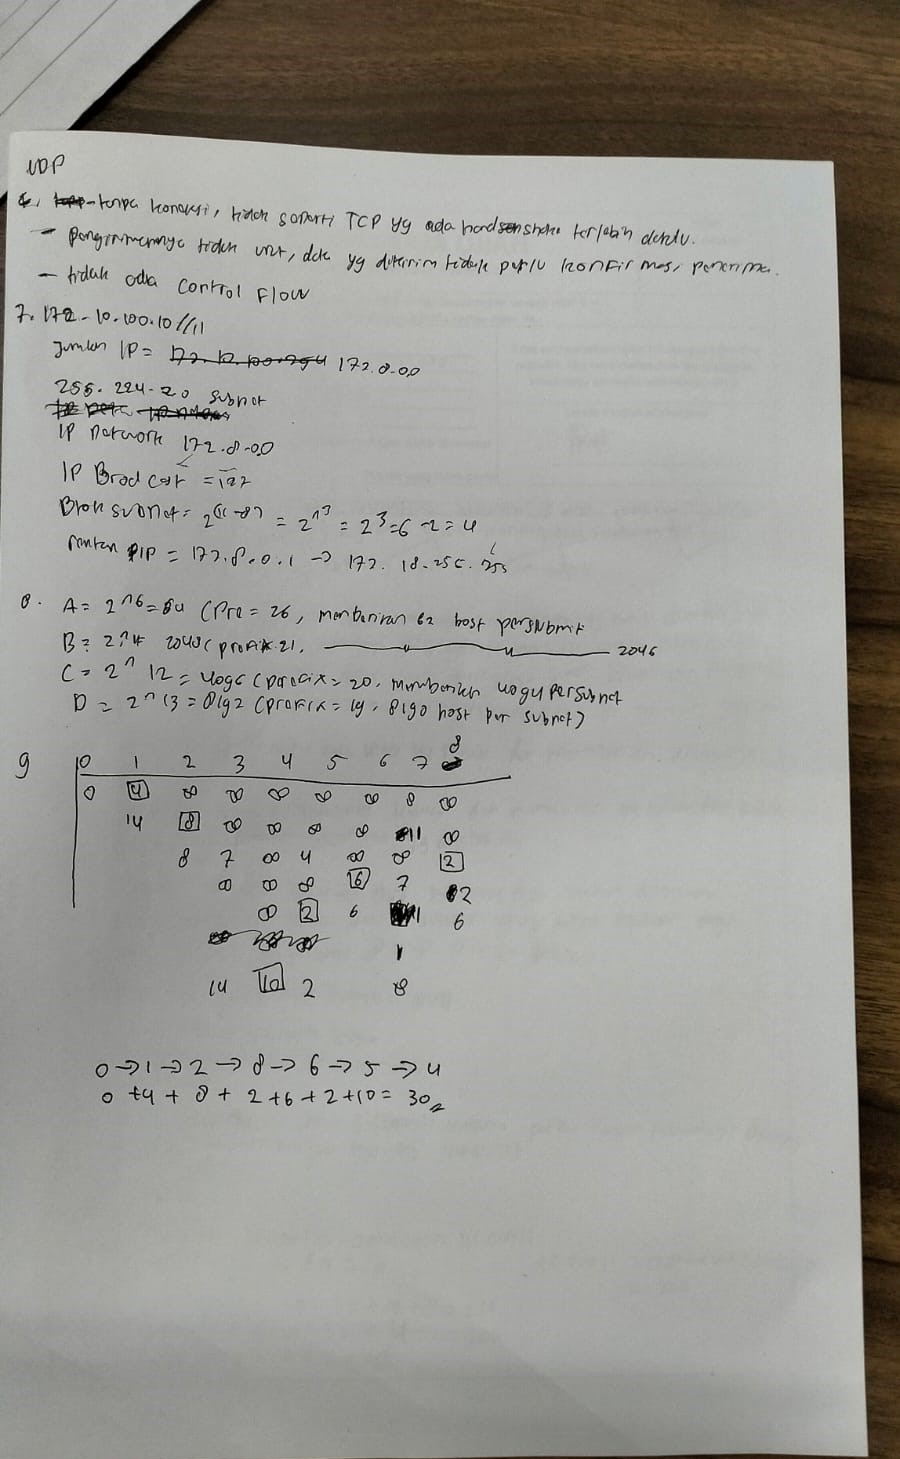 UDP
- tanpa koneksi, tidak seperti TCP yg ada handshake terlebih dahulu.
- pengirimannya tidak urut, data yg dikirim tidak perlu konfirmasi penerima.
- tidak ada control flow
7. 172-10.100.10//11
Jumlah IP = 172.8.0.0
255.224.20 subnet
IP Network 172.8.0.0
IP Brodcast =
Blok subnet = = 2^3 = 2^3=6-2=4
rentan IP = 172.8.0.1 -> 172.18.255.
8. A = 2^6=64 (Pre = 26, memberikan 62 host persubnet
B = 2048 (prefix 21, 2046
C = 2^12 = 4096 (prefix = 20, memberikan 4094 persubnet
D = 2^13 = 8192 (prefix = 19, 8190 host per subnet)
9 0 1 2 3 4 5 6 7 8
0 4 ∞ ∞ ∞ ∞ ∞ 8 ∞
14 8 ∞ ∞ ∞ ∞ 11 ∞
8 7 ∞ 4 ∞ ∞ 2
∞ ∞ ∞ 6 7 2
∞ 2 6 1 6
1
14 10 2 8
0->1->2->8->6->5->4
0+4+8+2+6+2+10=30